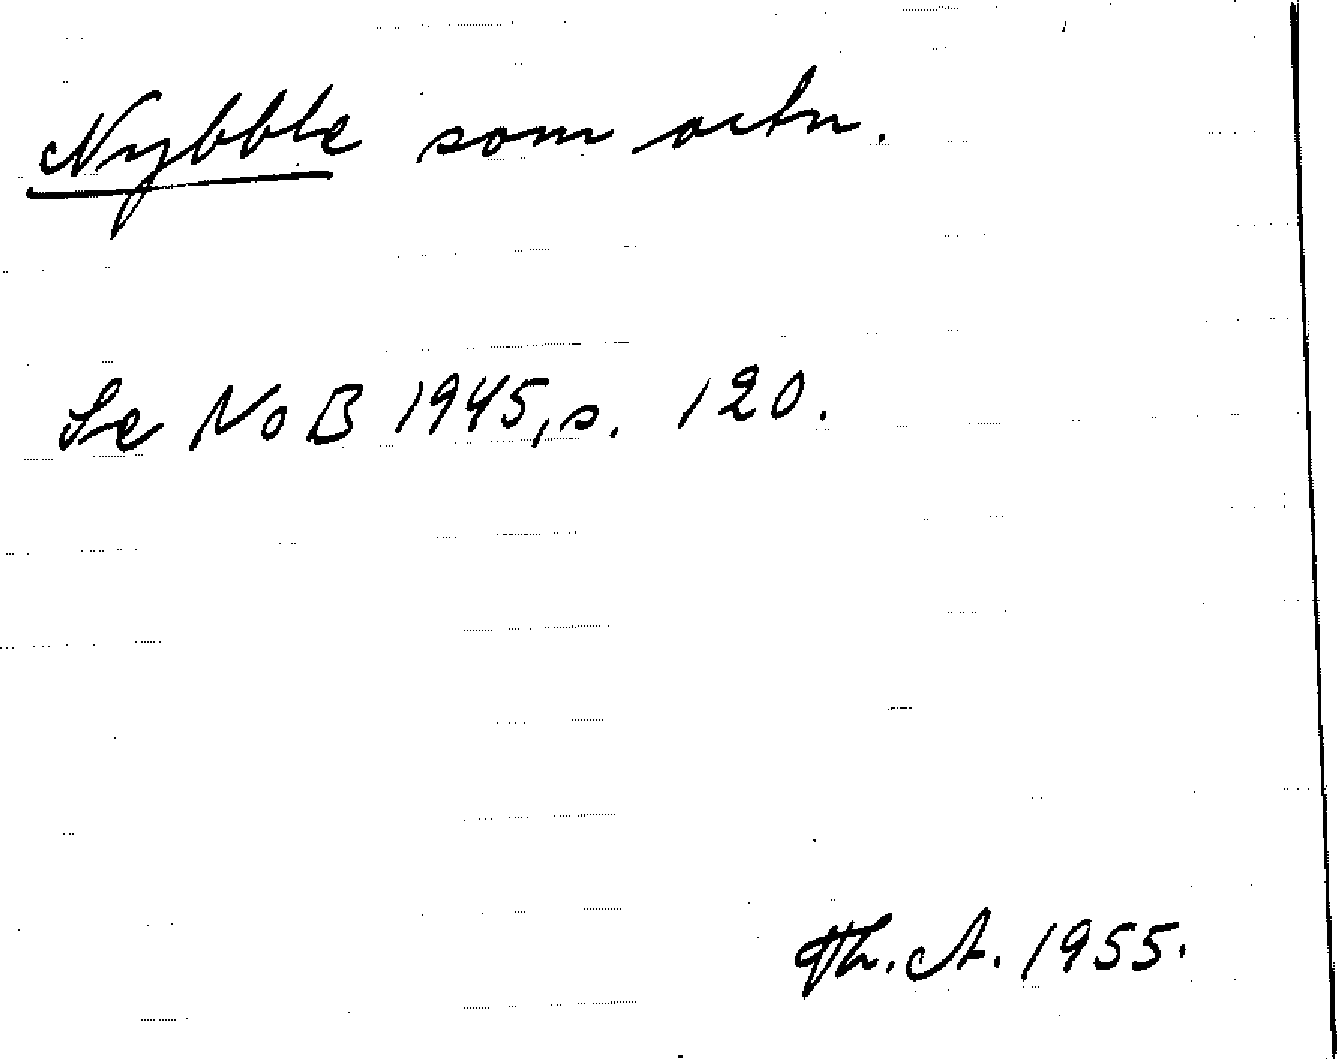 Nybble som ortn.
Se NoB 1945, s. 120.
Th. A. 1955.